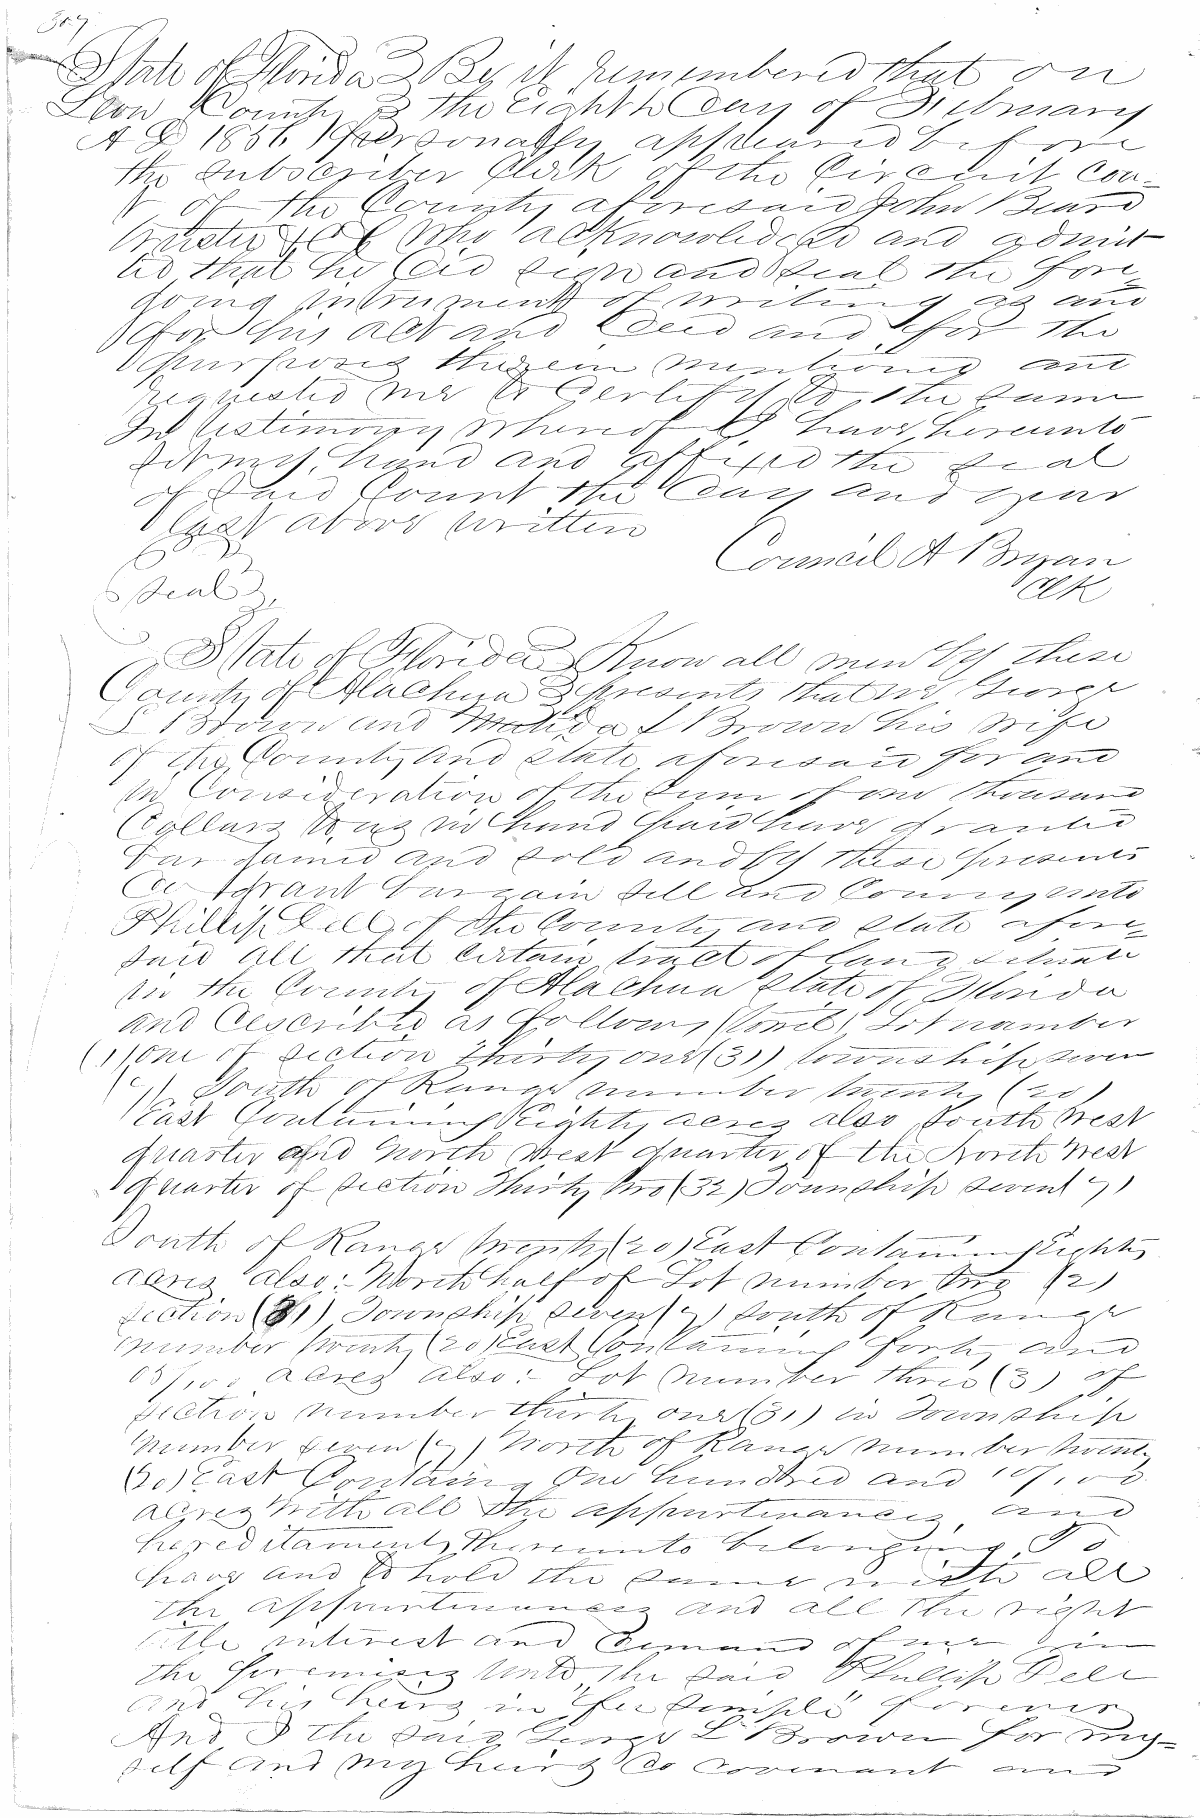 State of Florida } Be it remembered that on
Leon County } the eighth day of February
A D 1856 personally appeared before
the subscriber Clerk of the Circuit cou-
rt of the County aforesaid John Beard
trustee &c &c who acknowledged and admit
ted that he did sign and seal the fore-
going intrument of writing as and
for his act and deed and for the
purposes therein mentioned and
requested me to certify to the same
In testimony whereof I have hereunto
set my hand and affixed the seal
of said Court the day and year
last above written
Council A Bryan
Clk
Seal
State of Florida } Know all men by these
County of Alachua } presents that we George
L Brown and Matilda L Brown his wife
of the County and state aforesaid for and
in Consideration of the sum of one thousand
dollars to us in hand paid have granted
bar gained and sold and by these presents
do grant bargain sell and Convey unto
Phillip Dell of the County and state afore-
said all that certain tract of land situate
in the County of Alachua State of Florida
and described as follows (towit) Lot number
(1) one of section thirty one (31) township seven
(7) South of Range number twenty (20)
East Containing Eighty acres also South West
quarter and North West quarter of the North West
quarter of section Thirty two (32) Township seven (7)
South of Range twenty (20) East Containing Eighty
acres also:- North half of Lot number two (2)
section (31) Township seven (7) south of Range
number twenty (20) East Containing forty and
05/100 acres also:- Lot number three (3) of
section number thirty one (31) in Township
number seven (7) North of Range number twenty
(20) East Containing One hundred and 10/100
acres With all the appurtenances and
hereditaments thereunto belonging To
have and to hold the same with all
the appurtenances and all the right
title interest and demand of me in
the premises unto the said Phillip Dell
and his heirs in "fee simple" forever
And I the said George L Brown for my-
self and my heirs do covenant and